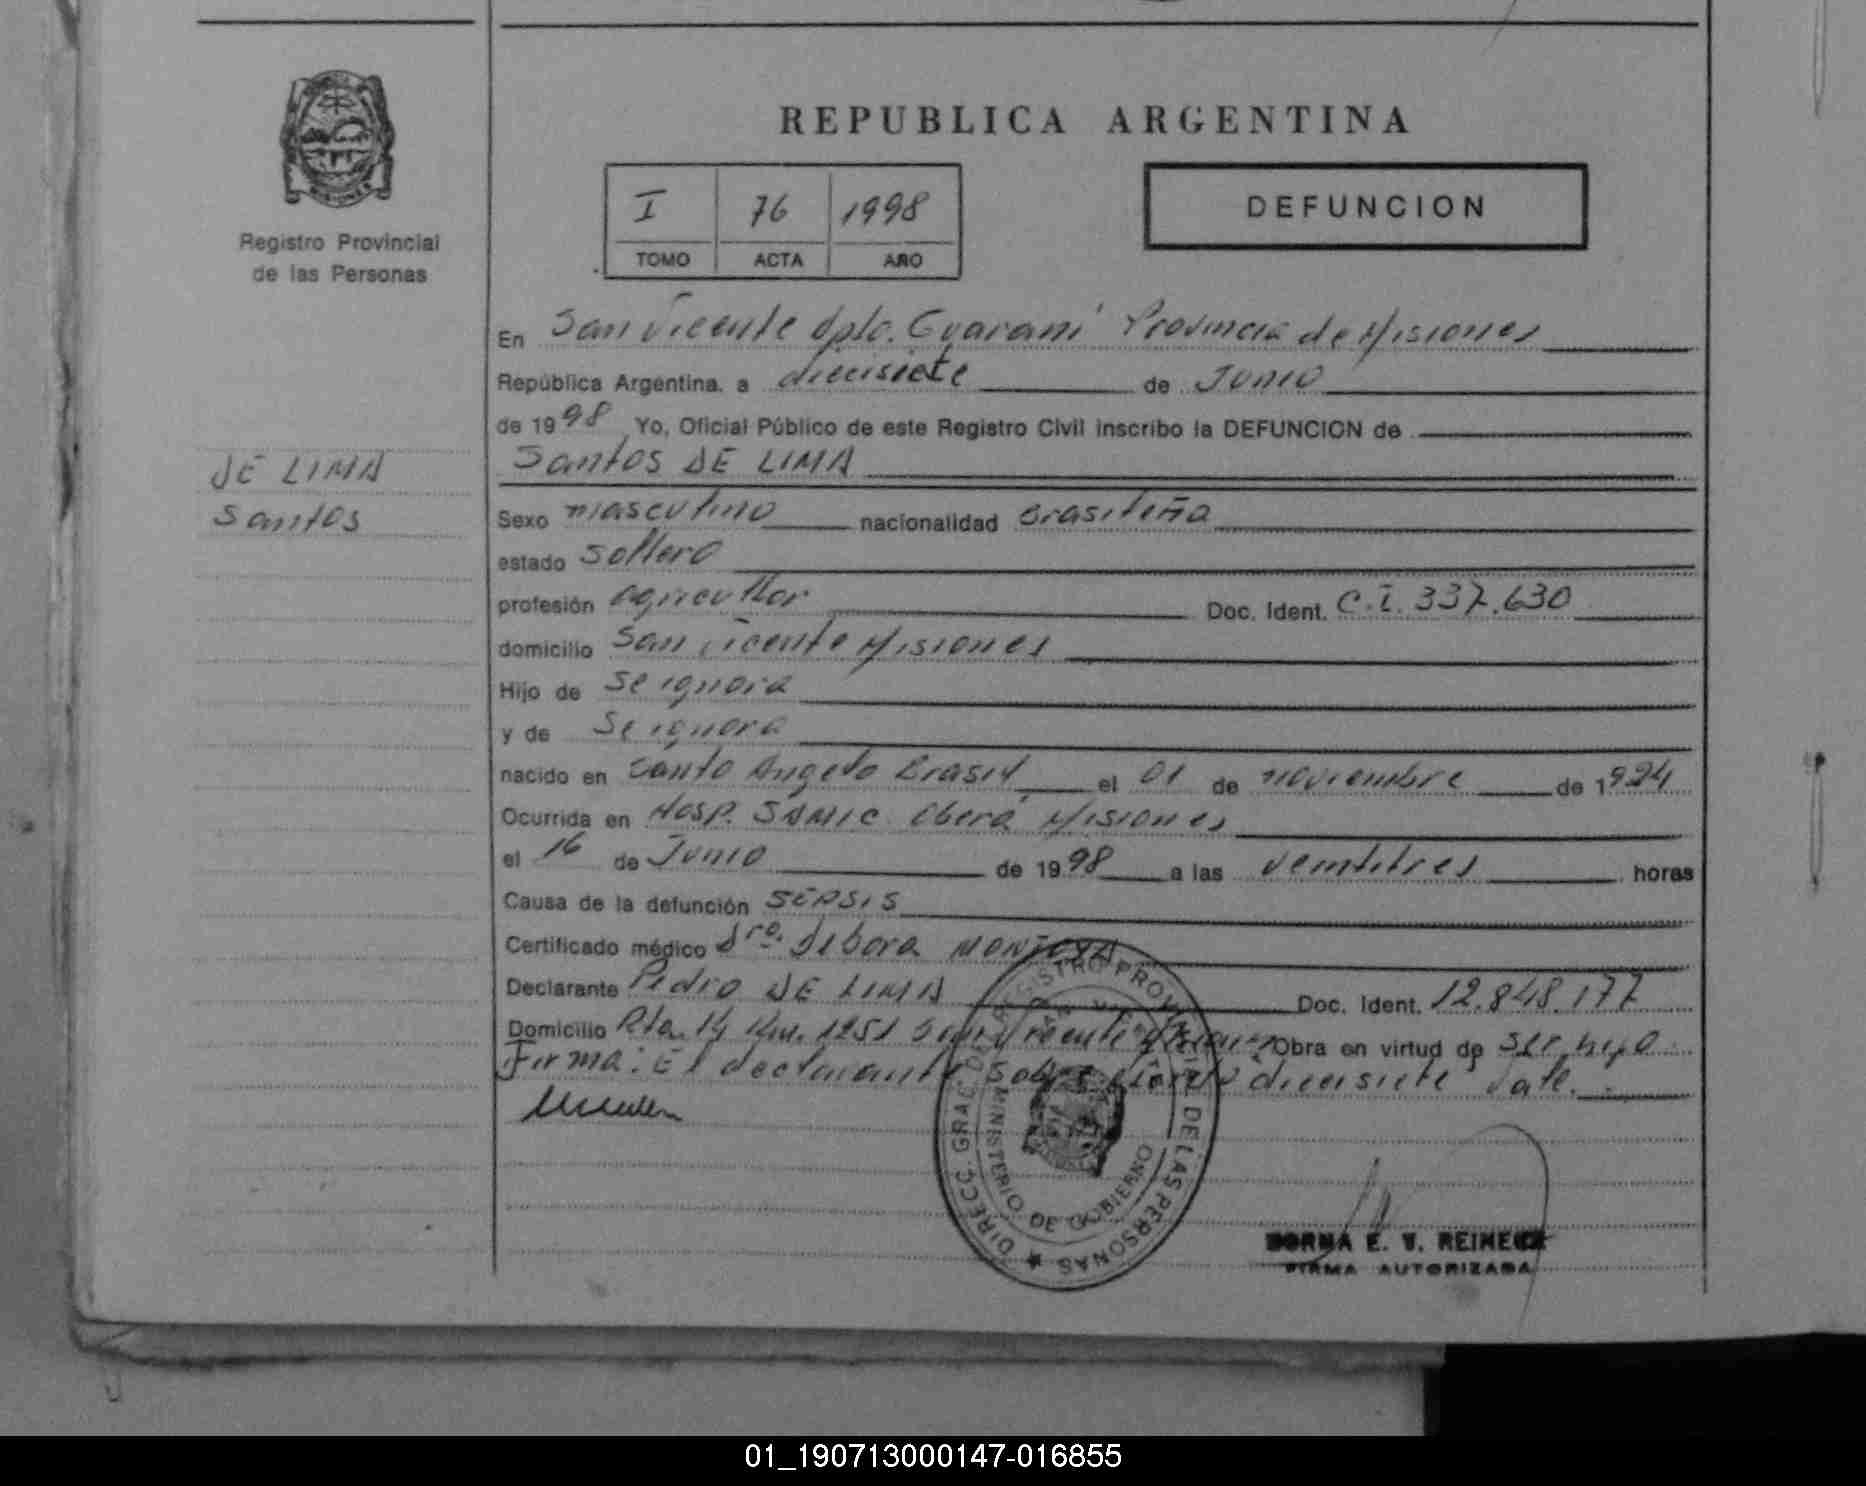 REPUBLICA ARGENTINA
MISIONES
Registro Provincial
de las Personas
I 76 1998
TOMO ACTA AÑO
DEFUNCION
DE LIMA
Santos
En San Vicente Dpto. Guaraní Provincia de Misiones
República Argentina, a diecisiete de Junio
de 1998 Yo, Oficial Público de este Registro Civil inscribo la DEFUNCION de
Santos DE LIMA
Sexo masculino nacionalidad Brasileña
estado soltero
profesión agricultor Doc. Ident. C.I. 337.630
domicilio San Vicente Misiones
Hijo de se ignora
y de se ignora
nacido en Santo Angelo Brasil el 01 de noviembre de 1924
Ocurrida en Hosp. SAMIC Oberá Misiones
el 16 de Junio de 1998 a las veintitres horas
Causa de la defunción SEPSIS
Certificado médico Dra. Debora MONTOYA
Declarante Pedro DE LIMA Doc. Ident. 12.848.177
Domicilio Rta. 14 Km. 1251 San Vicente Obra en virtud de ser hijo
Firma: El declarante diecisiete Vale.
DIRECC. GRAL. DEL REGISTRO PROVINCIAL DE LAS PERSONAS
MINISTERIO DE GOBIERNO
NORMA E. V. REINECK
FIRMA AUTORIZADA
01_190713000147-016855